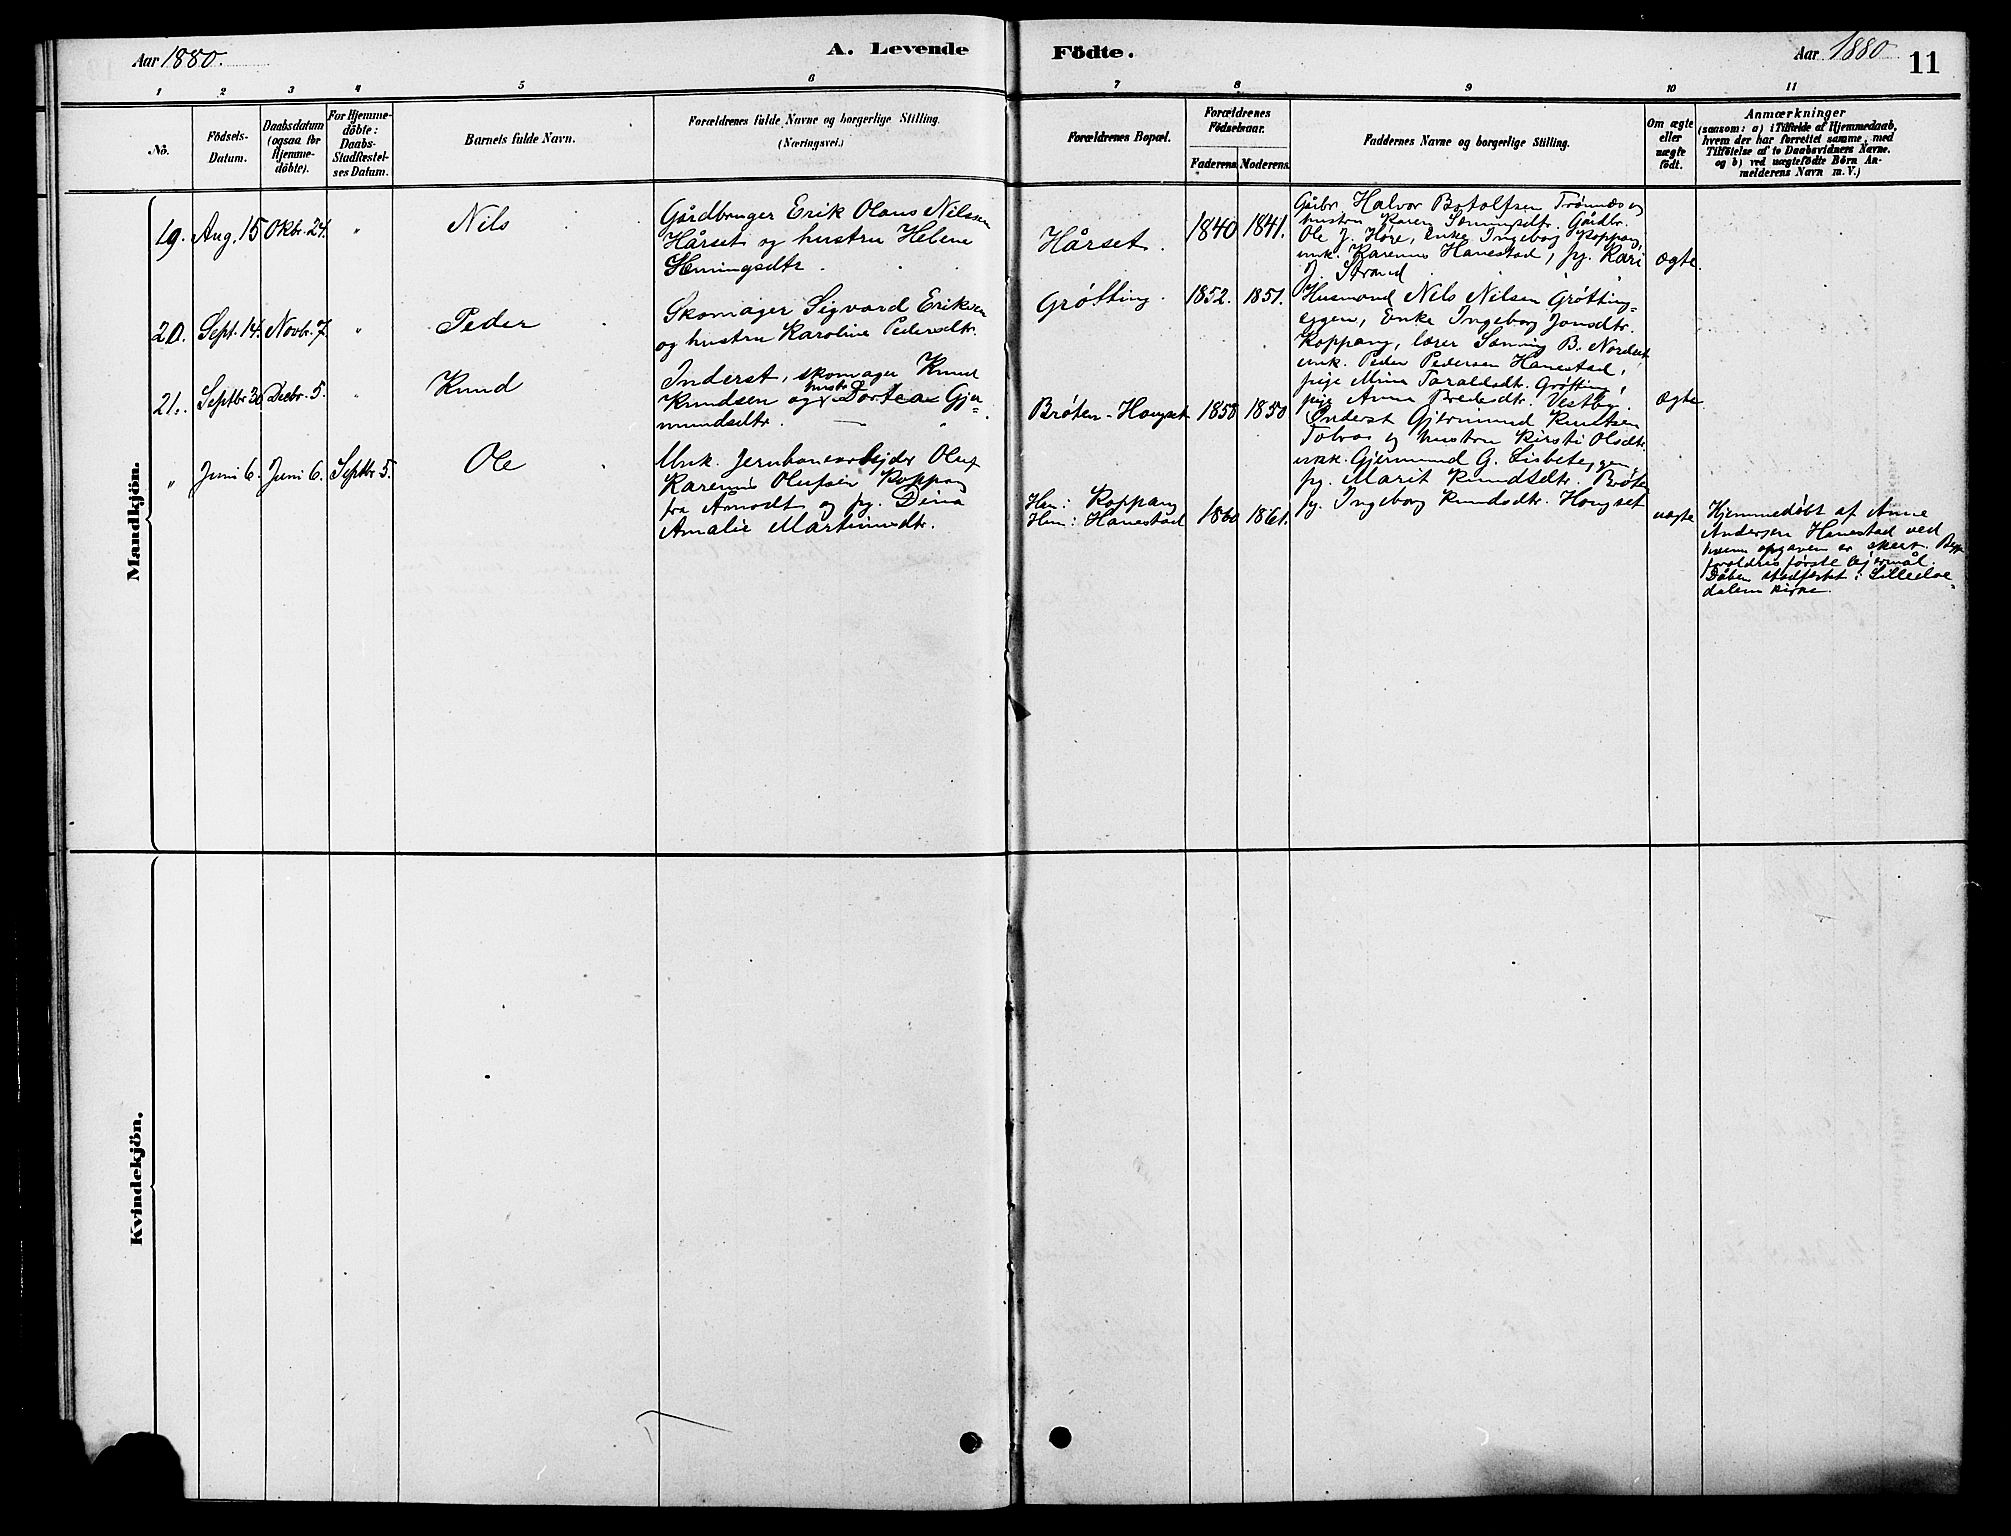 Aar 1880.
A. Levende Födte.
Aar 1880
11
1 2 3 4 5 6 7 8 9 10 11
No.
Födsels-
Datum.
Daabsdatum
(ogsaa for
Hjemme-
döbte).
For Hjemme-
döbte:
Daabs-
Stadfæstel-
ses Datum.
Barnets fulde Navn.
Forældrenes fulde Navne og borgerlige Stilling.
(Næringsvei.)
Forældrenes Bopæl.
Forældrenes
Födselsaar.
Faderens. Moderens.
Faddernes Navne og borgerlige Stilling.
Om ægte
eller
uægte
födt.
Anmærkninger
(saasom: a) i Tilfælde af Hjemmedaab,
hvem der har forrettet samme, med
Tilföielse af to Daabsvidners Navne.
og b) ved uægtefödte Börn An-
melderens Navn m. V.)
Mandkjön.
19. Aug. 15 Okbr. 24. "
Nils
Gårdbruger Erik Olaus Nilssen
Hårset og hustru Helene
Hemingsdtr.
Hårset.
1840 1841.
Gårbr. Halvor Botolfsen Trønnes og
hustru Karen Sæmingsdtr. Gårdbr.
Ole J. Høre, Enke Ingebog Koppang,
unk. Karenus Hanestad, pg. Kari
J. Strand
ægte.
20. Sept. 14. Novbr. 7. "
Peder
Skomager Sigvard Eriksen
og hustru Karoline Pedersdtr.
Grøtting.
1852. 1851.
Husmand Nils Nilsen Grøtting-
eggen, Enke Ingeborg Jonsdtr.
Koppang, lærer Sæming B. Nordset
unk. Peder Pedersen Hanestad,
pige Mina Taraldsdtr. Grøtting,
pige Anna Bredesdtr. Vestby.
21. Septbr 30 Decbr. 5. "
Knud
Inderst, skomager Knud
Knudsen og hustr Dortea Gjer-
mundsdtr.
Brøten-Hougset
1858 1850
Inderst Gjermund Knutsen
Tolvas og hustru Kirsti Olsdtr.
unk. Gjermund G. Lisbeteggen,
pg. Marit Knudsdtr. Brøten
pg. Ingeborg Knudsdtr. Hougset
ægte.
" Juni 6. Juni 6. Septbr 5.
Ole
Unk. Jernbanearbejder Oluf
Karenus Olufsen Koppang
fra Åmodt og pg. Dina
Amalie Martinusdtr.
Han: Koppang
Hun: Hanestad
1860 1861.
uægte
Hjemmedøbt af Anne
Andersen Hanestad ved
hvem opgaven er skeet. Begge
foreldres første lejermål.
Dåben stadfestet i Lilleelve-
dalens kirke.
Kvindekjön.